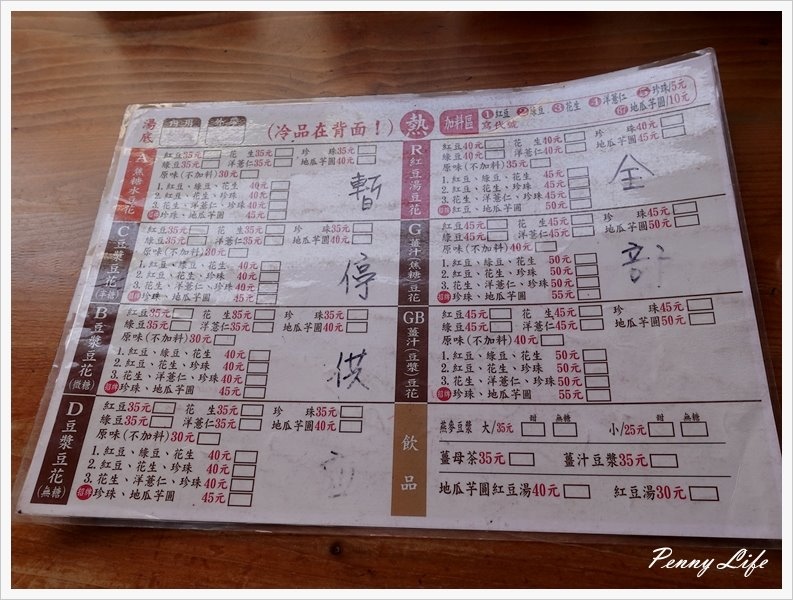 湯底 內用 外帶 (冷品在背面！) 熱 加料區 ①紅豆 ②綠豆 ③花生 ④洋薏仁 ⑤珍珠/5元
寫代號 ⑥⑦地瓜芋圓/10元
A 焦糖水豆花
紅豆35元 花生35元 珍珠35元
綠豆35元 洋薏仁35元 地瓜芋圓40元
原味(不加料)30元
1. 紅豆、綠豆、花生 40元
2. 紅豆、花生、珍珠 40元
3. 花生、洋薏仁、珍珠40元
招牌 珍珠、地瓜芋圓 45元
C 豆漿豆花(半糖)
紅豆35元 花生35元 珍珠35元
綠豆35元 洋薏仁35元 地瓜芋圓40元
原味(不加料)30元
1. 紅豆、綠豆、花生 40元
2. 紅豆、花生、珍珠 40元
3. 花生、洋薏仁、珍珠40元
招牌 珍珠、地瓜芋圓 45元
B 豆漿豆花(微糖)
紅豆35元 花生35元 珍珠35元
綠豆35元 洋薏仁35元 地瓜芋圓40元
原味(不加料)30元
1. 紅豆、綠豆、花生 40元
2. 紅豆、花生、珍珠 40元
3. 花生、洋薏仁、珍珠40元
招牌 珍珠、地瓜芋圓 45元
D 豆漿豆花(無糖)
紅豆35元 花生35元 珍珠35元
綠豆35元 洋薏仁35元 地瓜芋圓40元
原味(不加料)30元
1. 紅豆、綠豆、花生 40元
2. 紅豆、花生、珍珠 40元
3. 花生、洋薏仁、珍珠40元
招牌 珍珠、地瓜芋圓 45元
暫
停
供
R 紅豆湯豆花
紅豆40元 花生40元 珍珠40元
綠豆40元 洋薏仁40元 地瓜芋圓45元
原味(不加料)35元
1. 紅豆、綠豆、花生 45元
2. 紅豆、花生、珍珠 45元
3. 花生、洋薏仁、珍珠45元
招牌 紅豆、地瓜芋圓 50元
G 薑汁焦糖豆花
紅豆45元 花生45元 珍珠45元
綠豆45元 洋薏仁45元 地瓜芋圓50元
原味(不加料)40元
1. 紅豆、綠豆、花生 50元
2. 紅豆、花生、珍珠 50元
3. 花生、洋薏仁、珍珠50元
招牌 珍珠、地瓜芋圓 55元
GB 薑汁(豆漿)豆花
紅豆45元 花生45元 珍珠45元
綠豆45元 洋薏仁45元 地瓜芋圓50元
原味(不加料)40元
1. 紅豆、綠豆、花生 50元
2. 紅豆、花生、珍珠 50元
3. 花生、洋薏仁、珍珠50元
招牌 珍珠、地瓜芋圓 55元
全
部
飲品
甜 無糖 甜 無糖
燕麥豆漿 大/35元 小/25元
薑母茶35元 薑汁豆漿35元
地瓜芋圓紅豆湯40元 紅豆湯30元
Penny Life